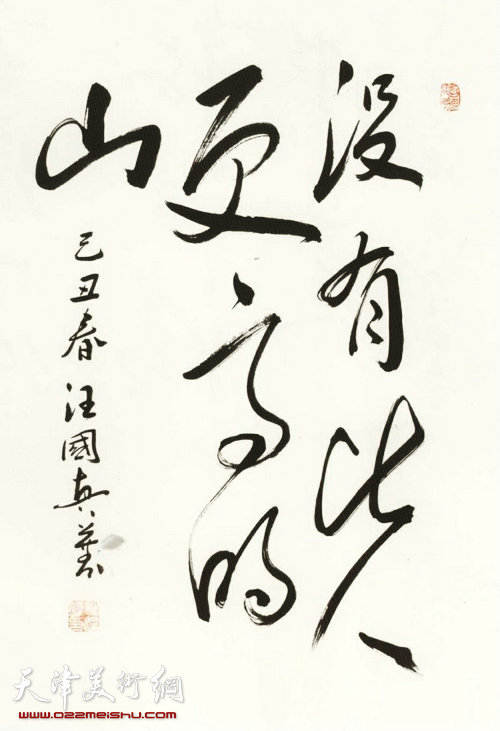 没有比人
更高的
山
己丑春汪國真
天津美術網
www.022meishu.com